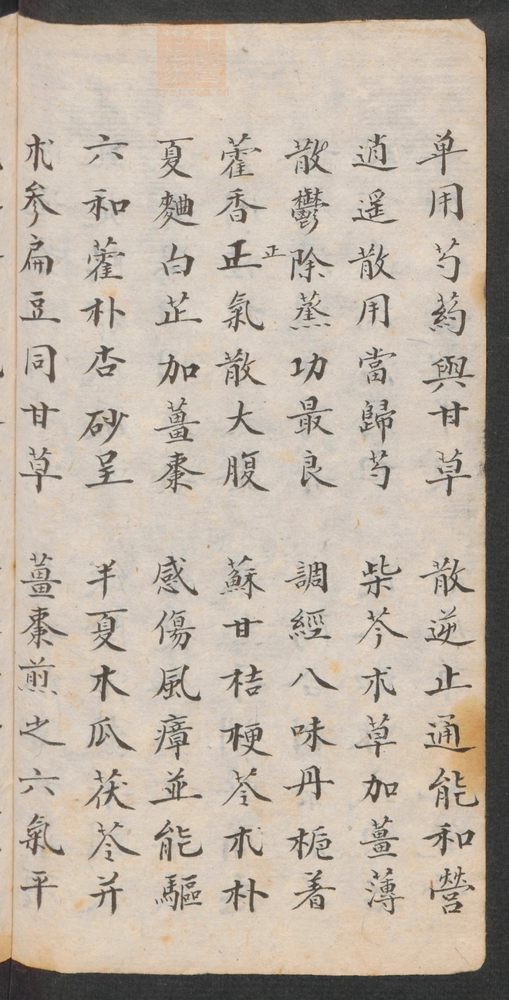 单用芍药與甘草　散逆止通能和營
逍遥散用當歸芍　柴芩朮草加薑薄
散鬱除蒸功最良　調經八味丹梔着
藿香正氣散大腹　蘇甘桔梗苓朮朴
正
夏麯白芷加薑棗　感傷風瘴並能驅
六和藿朴杏砂呈　半夏木瓜茯苓并
朮參扁豆同甘草　薑棗煎之六氣平